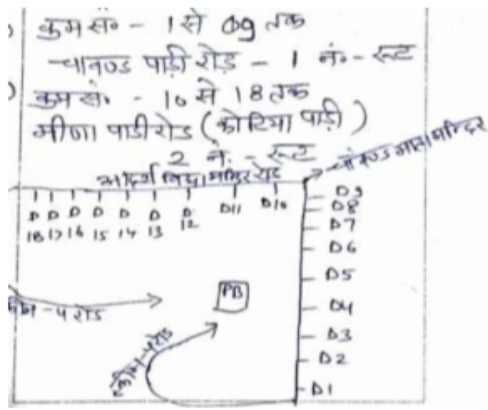 क्रम सं० - 1 से 09 तक
चावण्ड पाड़ी रोड़ - 1 नं.- रूट
क्रम सं. - 10 से 18 तक
मीणा पाडी रोड़ (कोटिया पाड़ी)
2 नं. - रूट
आदर्श विद्या मन्दिर रोड
चांवण्ड माता मन्दिर
D18 D17 D16 D15 D14 D13 D12 D11 D10
D9
D8
D7
D6
D5
PB
D4
- 4 रोड
D3
स्कीम - 4 रोड
D2
D1